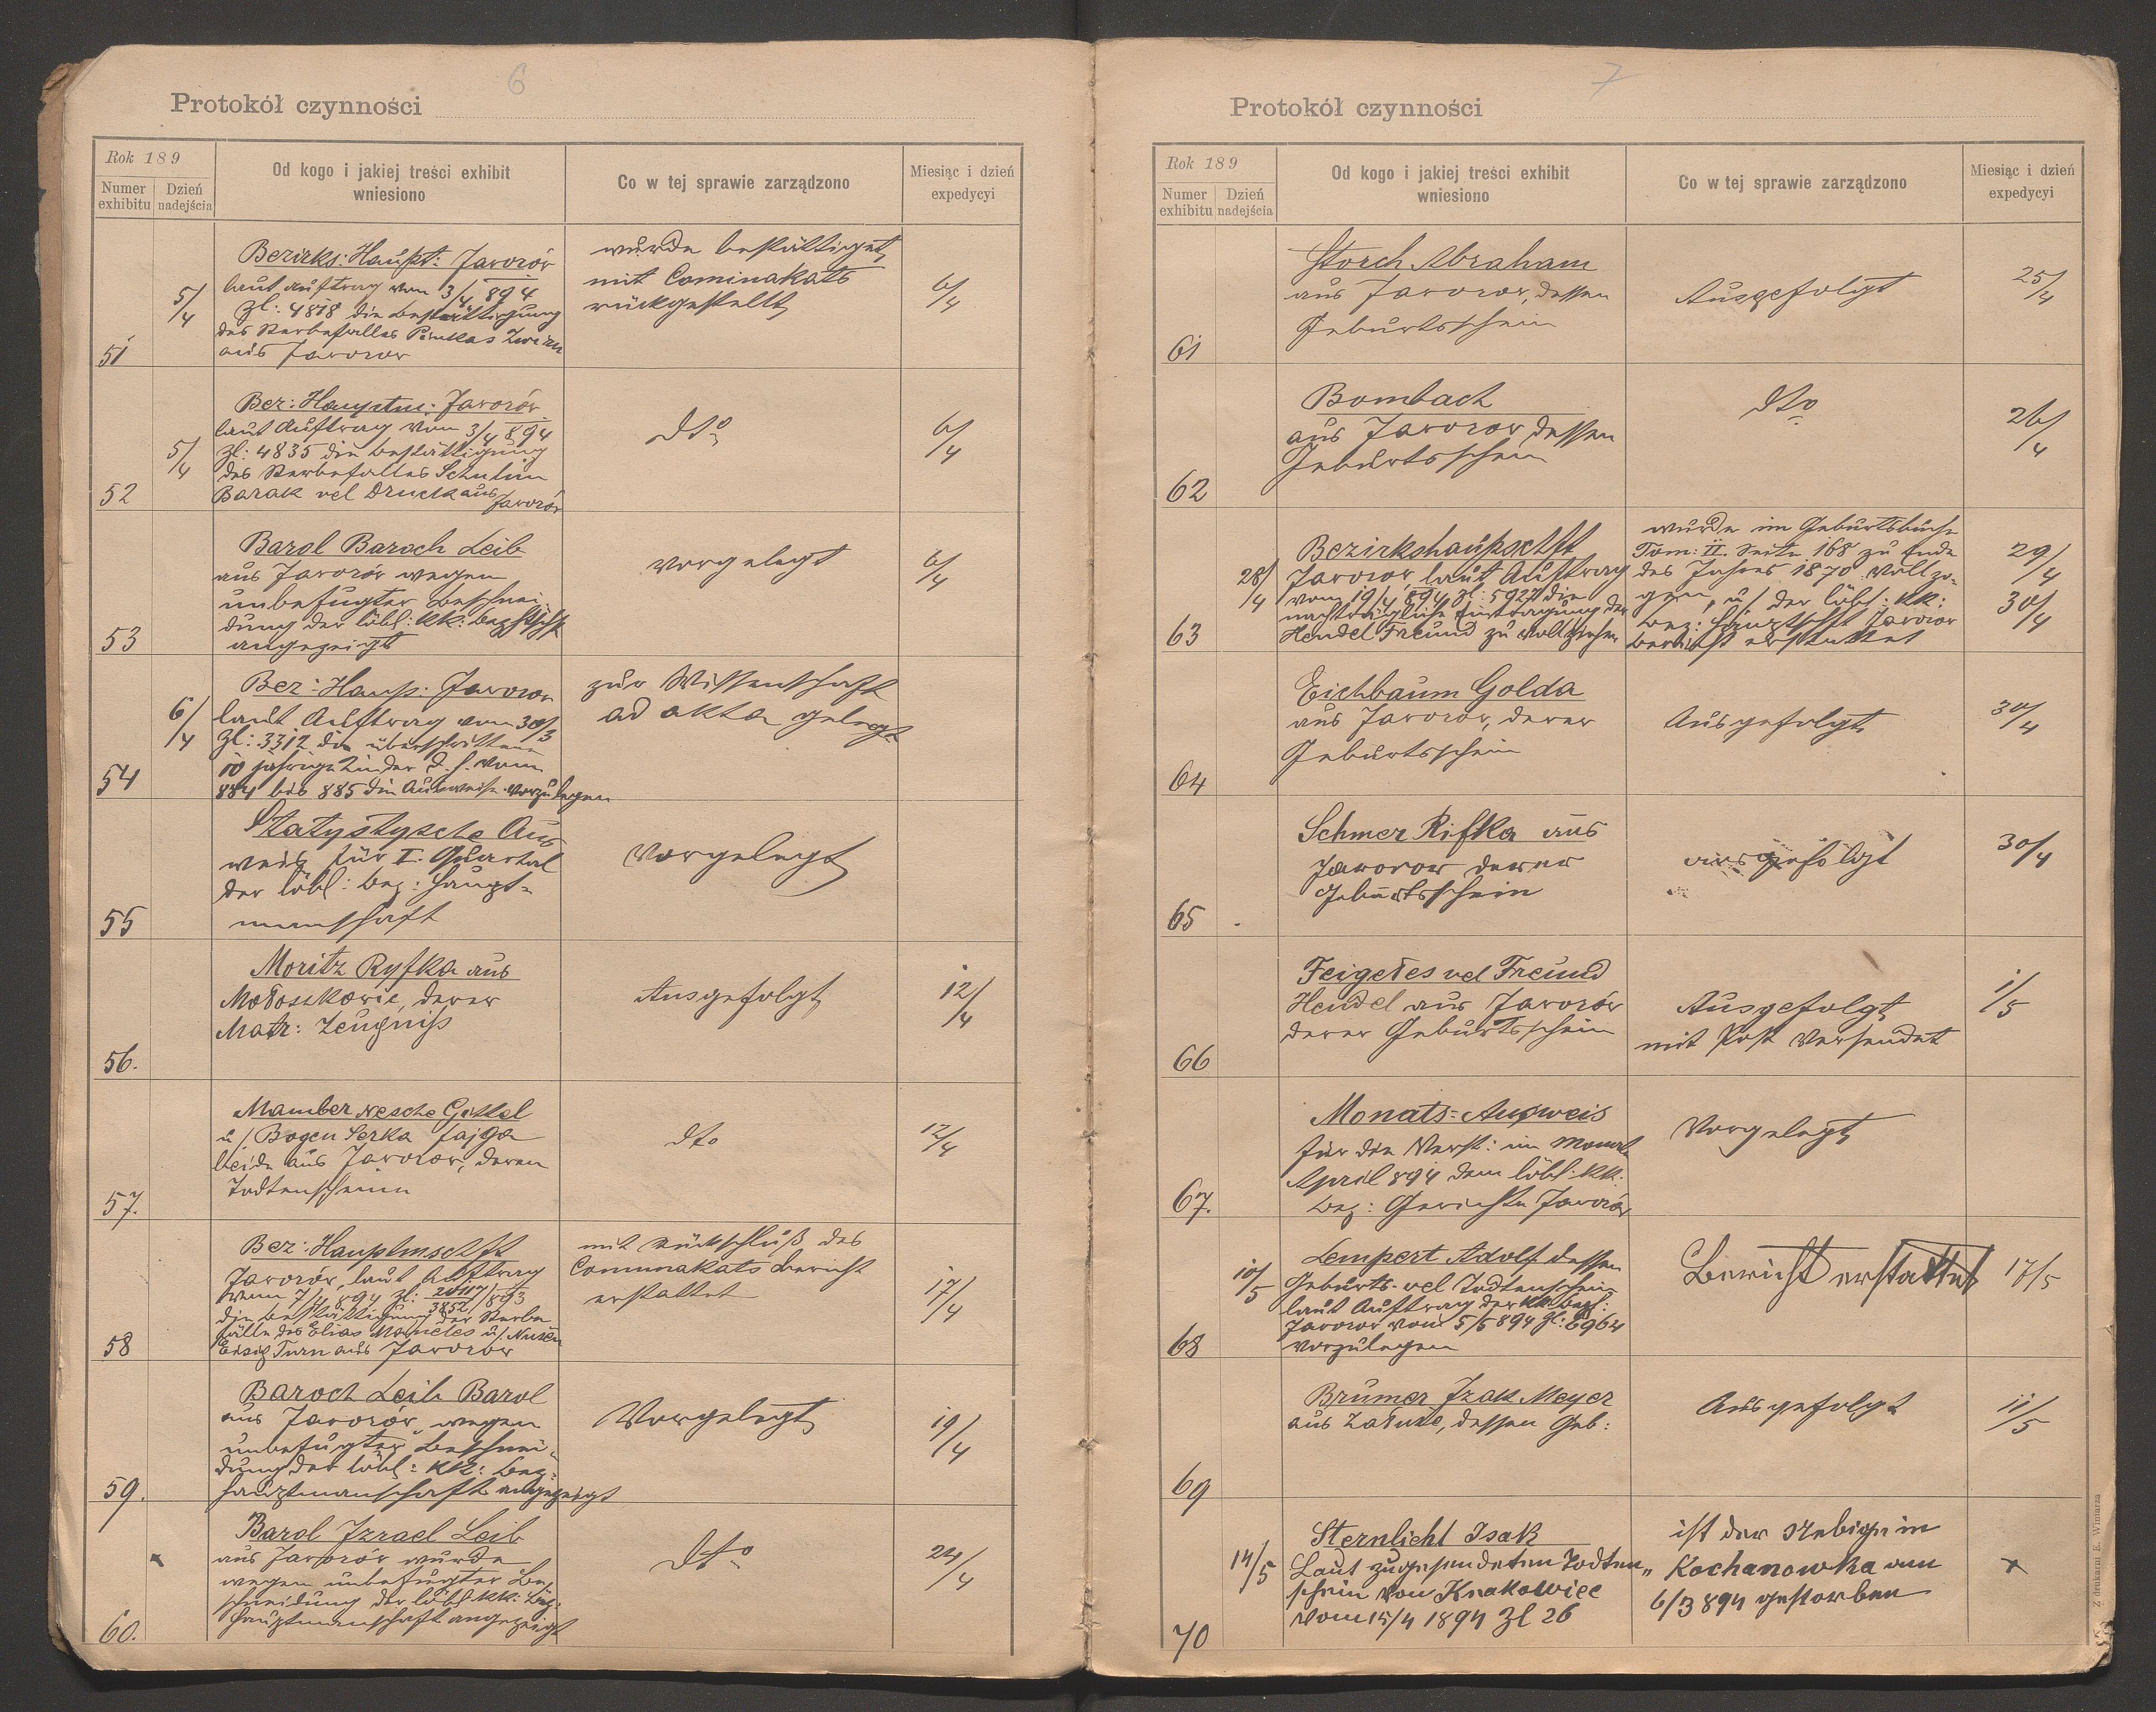 6
Protokół czynności
Rok 189
Numer exhibitu
Dzień nadejścia
Od kogo i jakiej treści exhibit wniesiono
Co w tej sprawie zarządzono
Miesiąc i dzień expedycyi
51
5/4
Bezirks: Haupt: Javorór
laut Auftrag vom 3/4 894
Zl: 4818 die Bestättigung
des Sterbefalles Pinkas Zwirn
aus Javorow
wurde bestättiget,
mit Cominakats
rückgestellt
6/4
52
5/4
Bez: Hauptm: Javorór
laut Auftrag vom 3/4 894
Zl: 4835 die Bestättigung
des Sterbefalles Schulim
Barak vel Druck aus Javorór
dto
6/4
53
Barol Baroch Leib
aus Javorór wegen
unbefugter Beschnei-
dung der löbl: kk:
angezeigt
vorgelegt
6/4
54
6/4
Bez: Haup: Javorow
laut Auftrag vom 30/3
Zl: 3312 die überschrittene
10 jährige Kinder d. h. vom
884 bis 885 die Ausweise vorzulegen
zur Wissenschaft
ad akta gelegt
55
Statystysche Aus
weis für I. Quartal
der löbl: Bez: Haupt=
mannschaft
Vorgelegt
56.
Moritz Ryfka aus
Mołoszkowie, derer
Matr: Zeugniss
Ausgefolgt
12/4
57.
Mamber Nesche Gittel
u/ Bogen Serka Fajga
beide aus Javorow, deren
Todtenscheine
dto
12/4
58
Bez: Hauptmschft
Javorór, laut Auftrag
vom 7/4 894 Zl: 3852/893
die Bestättigung der Sterbe
fälle des Elias Mameles u/ Nusen
Eisig Turn aus Javorów
mit Rückschluß des
Comunakats Bericht
erstattet
17/4
59.
Baroch Leib Barol
aus Javorór, wegen
unbefugter Beschnei-
dung der löbl: kk: Bez=
hauptmanschaft angezeigt
Vorgelegt
19/4
60.
Barol Izrael Leib
aus Javorór wurde
wegen unbefugter Be
schneidung der löbl kk: Bez:
Hauptmanschaft angezeigt
dto
24/4
7
Protokół czynności
Rok 189
Numer exhibitu
Dzień nadejścia
Od kogo i jakiej treści exhibit wniesiono
Co w tej sprawie zarządzono
Miesiąc i dzień expedycyi
61
Storch Abraham
aus Javorow, dessen
Geburtsschein
Ausgefolgt
25/4
62
Bombach
aus Javorow dessen
Geburtsschein
dto
26/4
63
28/4
Bezirkshaupschft
Javorow laut Auftrag
vom 19/4 894 Zl: 5927 die
nachträgliche Eintragung der
Hendel Freund zu vollziehen
wurde im Geburtsbuche
Tom: II. Seite 168 zu Ende
des Jahres 1870 vollzo-
gen, u/ der löbl: kk:
Bez: Hauptschft Javorow
Bericht erstattet
29/4
30/4
64
Eichbaum Golda
aus Javorow, derer
Geburtsschein
Ausgefolgt
30/4
65
Schmer Rifka aus
Javorow derer
Geburtsschein
ausgefolgt
30/4
66
Feigeles vel Freund
Hendel aus Javorór
derer Geburtsschein
Ausgefolgt
mit Post versendet
1/5
67.
Monats=Ausweis
für die Verst: im Monate
April 894 dem löbl. kk.
Bez: Gerichte Javorór
Vorgelegt
68
10/5
Lempert Adolf dessen
Geburts- vel Todtenschein
laut Auftrag der kk
Javorow vom 5/5 894 Zl: 6964
vorzulegen
Bericht erstattet
17/5
69
Brumer Izak Meyer
aus Załuże, dessen Geb:
Ausgefolgt
11/5
70
14/5
Sternlicht Isak
Laut zugesendeten Todten„
schein von Krakowiec
vom 15/4 1894 Zl 26
ist der in
Kochanowka am
6/3 894 gestorben
Z drukarni E. Winiarza